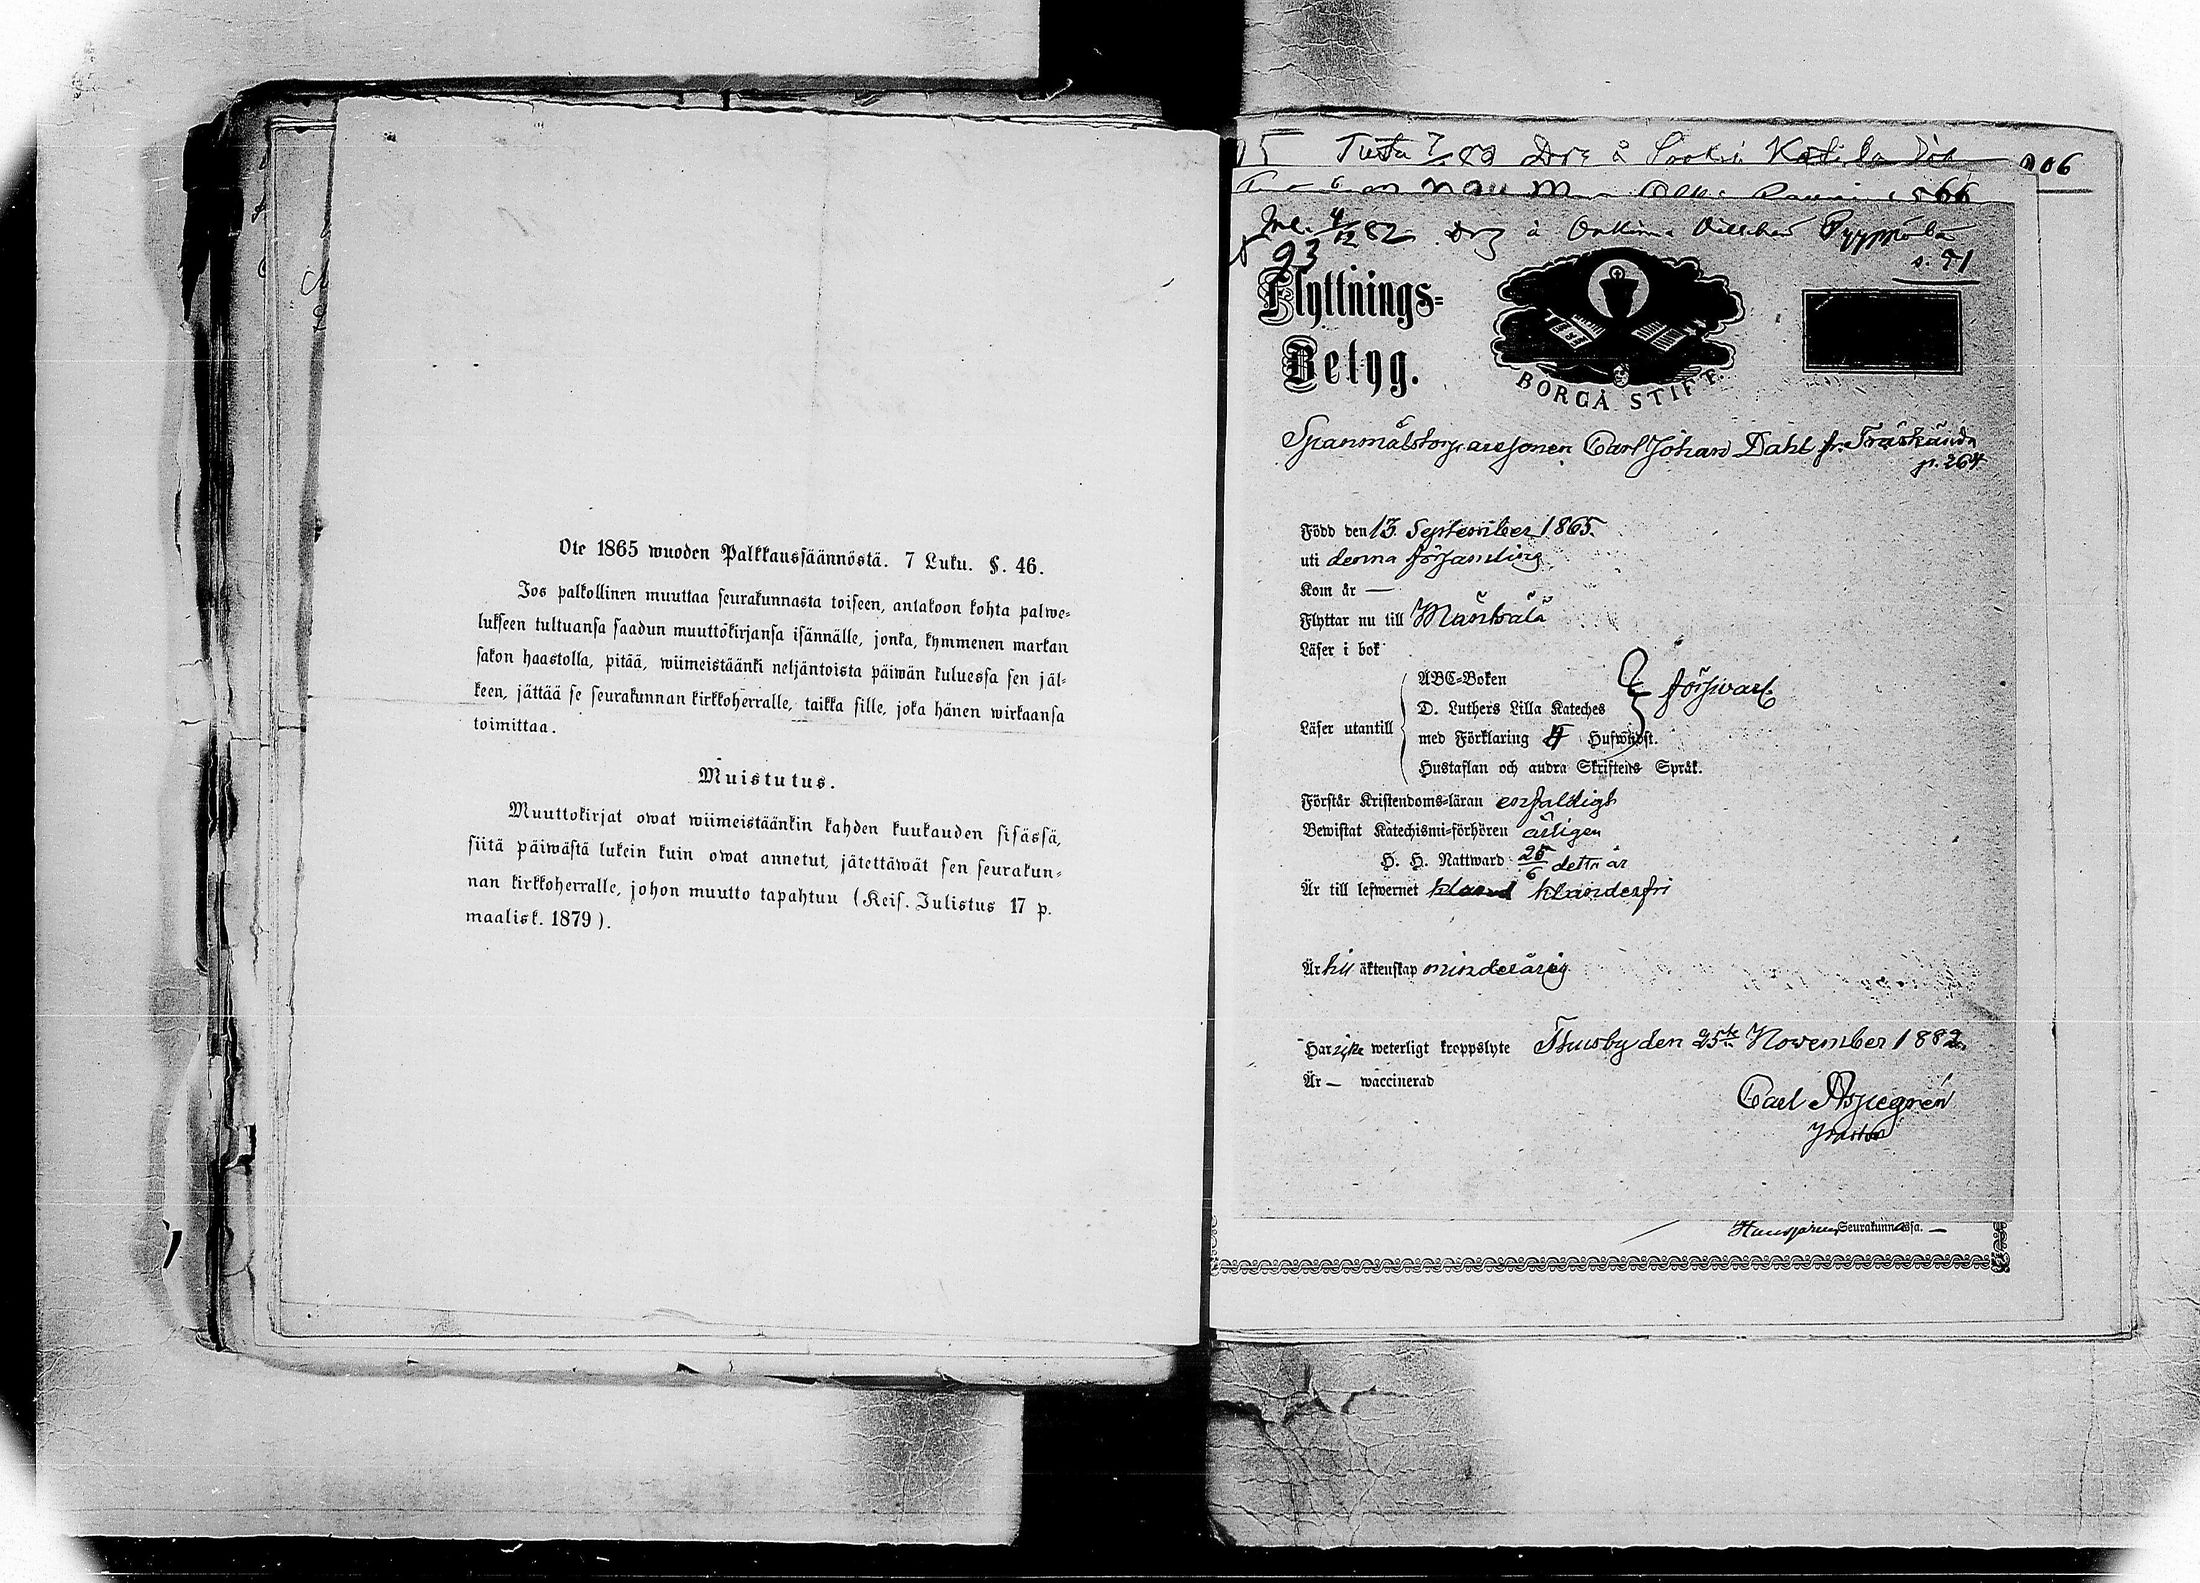 Ote 1865 wuoden Palkkaussäännöstä. 7 Luku. §. 46.
Jos palkollinen muuttaa seurakunnasta toiseen, antakoon kohta palwe=
lukseen tultuansa saadun muuttokirjansa isännälle, jonka, kymmenen markan
sakon haastolla, pitää, wiimeistäänki neljäntoista päiwän kuluessa sen jäl=
keen, jättää se seurakunnan kirkkoherralle, taikka sille, joka hänen wirkaansa
toimittaa.
Muistutus.
Muuttokirjat owat wiimeistäänkin kahden kuukauden sisässä,
siitä päiwästä lukein kuin owat annetut, jätettäwät sen seurakun=
nan kirkkoherralle, johon muutto tapahtuu (Keis. Julistus 17 p.
maalisk. 1879).
206
566
Inl. 4/12 82 Drg å
93
s. 71
Flyttnings=
Betyg.
BORGÅ STIFT.
Spanmålstorparesonen Carl Johan Dahl fr. Träskända
p. 264
Född den 13. September 1865.
uti denna församling
Kom år —
Flyttar nu till Mäntsälä
Läser i bok
ABC=Boken
D. Luthers Lilla Kateches försvarl.
Läser utantill
med Förklaring Hufwudst.
Hustaflan och andra Skriftens Språk.
Förstår Kristendoms=läran enfaldigt
Bewistat Katechismi=förhören årligen
H. H. Nattward 25/6 detta år
Är till lefwernet klanderfri
Är till äktenskap minderårig
Har icke weterligt kroppslyte Thusby den 25te November 1882.
Är — waccinerad
Carl Aspegrén
Seurakunnassa. —